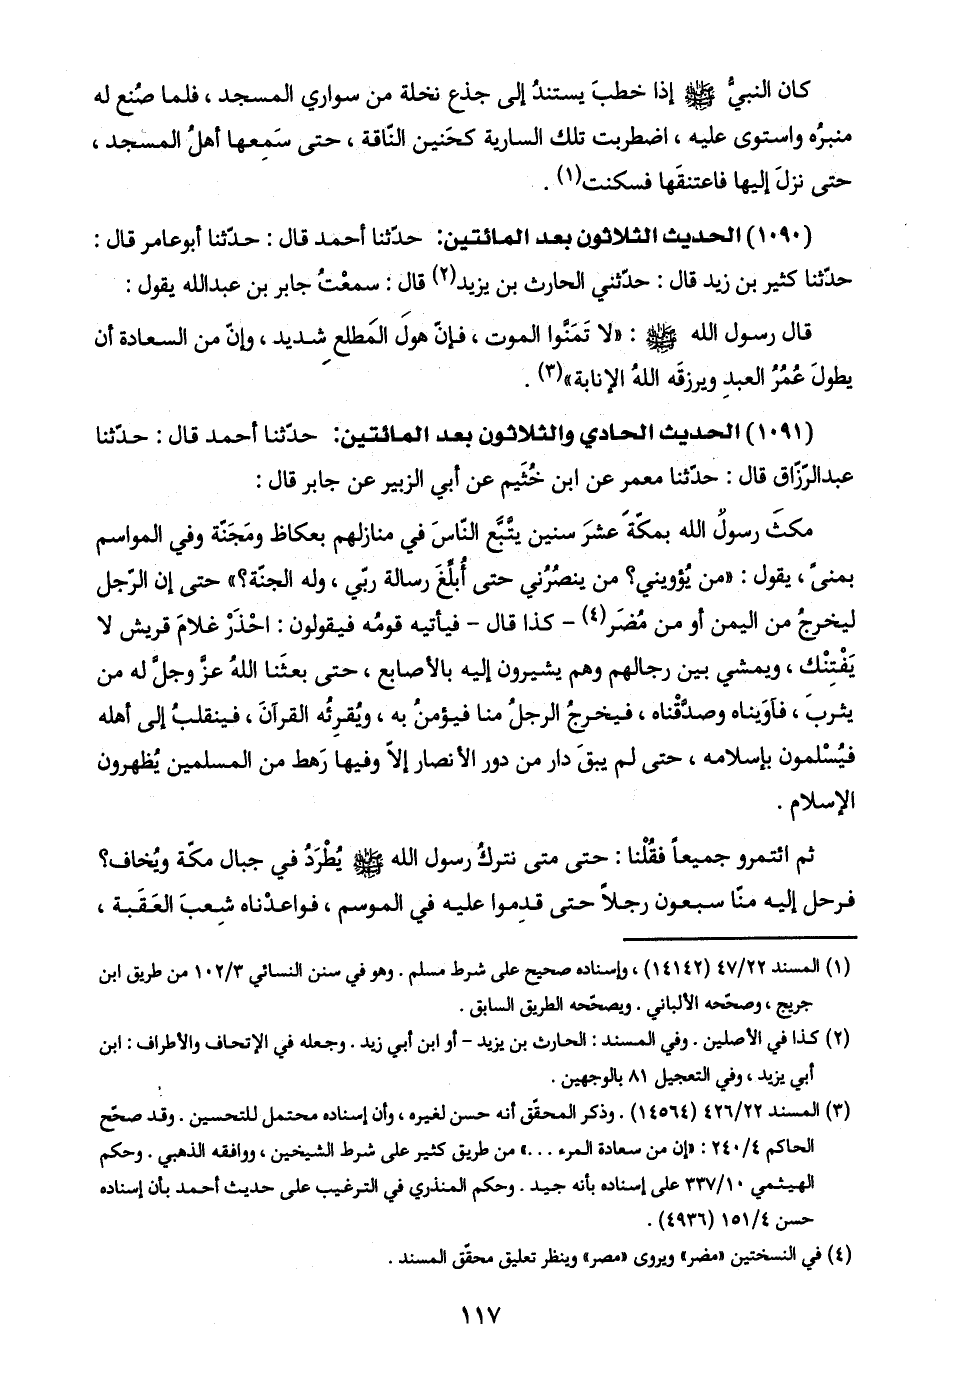 كان النبيُّ ﷺ إذا خطبَ يستندُ إلى جذع نخلة من سواري المسجد ، فلما صُنع له
منبرُه واستوى عليه ، اضطربت تلك السارية كحَنين النّاقة ، حتى سَمِعها أهلُ المسجد ،
حتى نزلَ إليها فاعتنقَها فسكنت(١) .
(١٠٩٠) الحديث الثلاثون بعد المائتين: حدّثنا أحمد قال : حدّثنا أبوعامر قال :
حدّثنا كثير بن زيد قال : حدّثني الحارث بن يزيد(٢) قال : سمعْتُ جابر بن عبدالله يقول :
قال رسول الله ﷺ : «لا تَمَنَّوا الموت ، فإنّ هولَ المَطلع شديد ، وإنّ من السعادة أن
يطولَ عُمُرُ العبدِ ويرزقَه اللهُ الإنابة»(٣) .
(١٠٩١) الحديث الحادي والثلاثون بعد المائتين: حدّثنا أحمد قال : حدّثنا
عبدالرّزّاق قال : حدّثنا معمر عن ابن خُثَيم عن أبي الزبير عن جابر قال :
مكثَ رسولُ الله بمكّةَ عشرَ سنين يتَّبَّع النّاسَ في منازلهم بعكاظ ومَجَنّة وفي المواسم
بمنىً ، يقول : «من يُؤويني؟ من ينصُرُني حتى أُبلِّغَ رسالة ربّي ، وله الجنّة؟» حتى إن الرّجل
ليخرجُ من اليمن أو من مُضَر(٤) - كذا قال - فيأتيه قومُه فيقولون : احْذَرْ غلامَ قريش لا
يَفْتِنْك ، ويمشي بين رجالهم وهم يشيرون إليه بالأصابع ، حتى بعثَنا اللهُ عزَّ وجلَّ له من
يثربَ ، فآوَيناه وصدَّقْناه ، فيخرجُ الرجلُ منا فيؤمنُ به ، ويُقرِئُه القرآنَ ، فينقلبُ إلى أهله
فيُسْلمون بإسلامه ، حتى لم يبقَ دار من دور الأنصار إلاّ وفيها رَهط من المسلمين يُظهرون
الإسلام .
ثم ائتمرو جميعاً فقُلْنا : حتى متى نتركُ رسول الله ﷺ يُطْرَدُ في جبال مكّة ويُخاف؟
فرحل إليه منّا سبعون رجلاً حتى قدِموا عليه في الموسم ، فواعدْناه شِعبَ العَقَبة ،
(١) المسند ٤٧/٢٢ (١٤١٤٢) ، وإسناده صحيح على شرط مسلم . وهو في سنن النسائي ١٠٢/٣ من طريق ابن
جريج ، وصحّحه الألباني . ويصحّحه الطريق السابق .
(٢) كذا في الأصلين . وفي المسند : الحارث بن يزيد - أو ابن أبي زيد . وجعله في الإتحاف والأطراف : ابن
أبي يزيد ، وفي التعجيل ٨١ بالوجهين .
(٣) المسند ٤٢٦/٢٢ (١٤٥٦٤) . وذكر المحقّق أنه حسن لغيره ، وأن إسناده محتمل للتحسين . وقد صحّح
الحاكم ٢٤٠/٤ : «إن من سعادة المرء ...» من طريق كثير على شرط الشيخين ، ووافقه الذهبي . وحكم
الهيثمي ٣٣٧/١٠ على إسناده بأنه جيد . وحكم المنذري في الترغيب على حديث أحمد بأن إسناده
حسن ١٥١/٤ (٤٩٣٦) .
(٤) في النسختين «مضر» ويروى «مصر» وينظر تعليق محقّق المسند .
١١٧